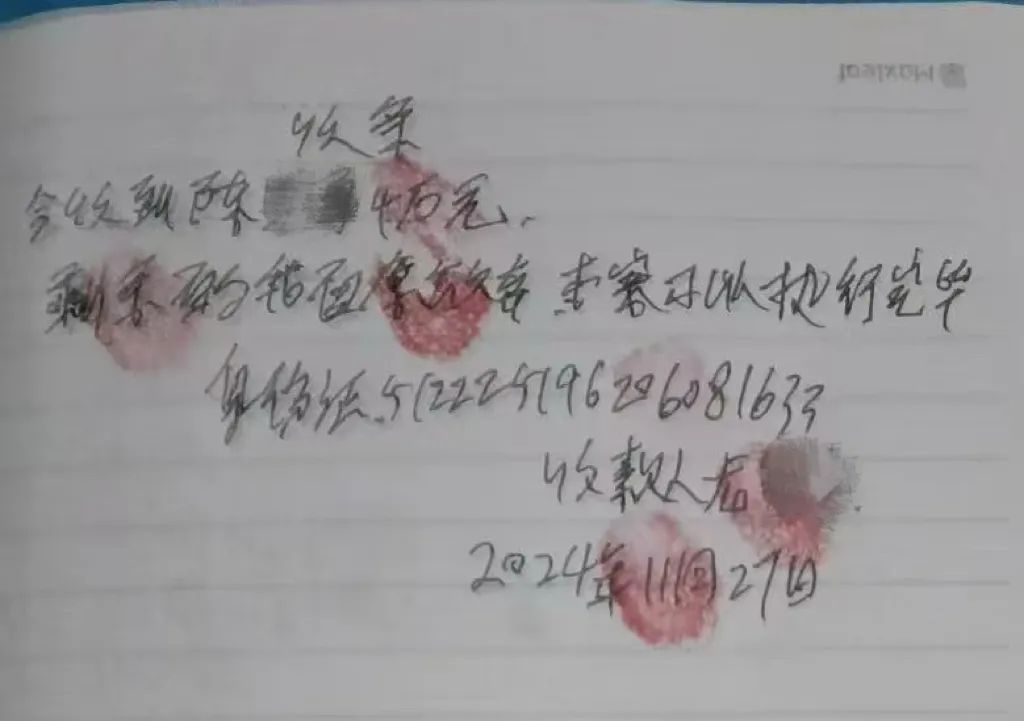 Maxleaf
收条
今收到陈 4万元.
剩余的 放弃.本案可以执行完毕
身份证.512225196206081633
收款人
2024年11月27日